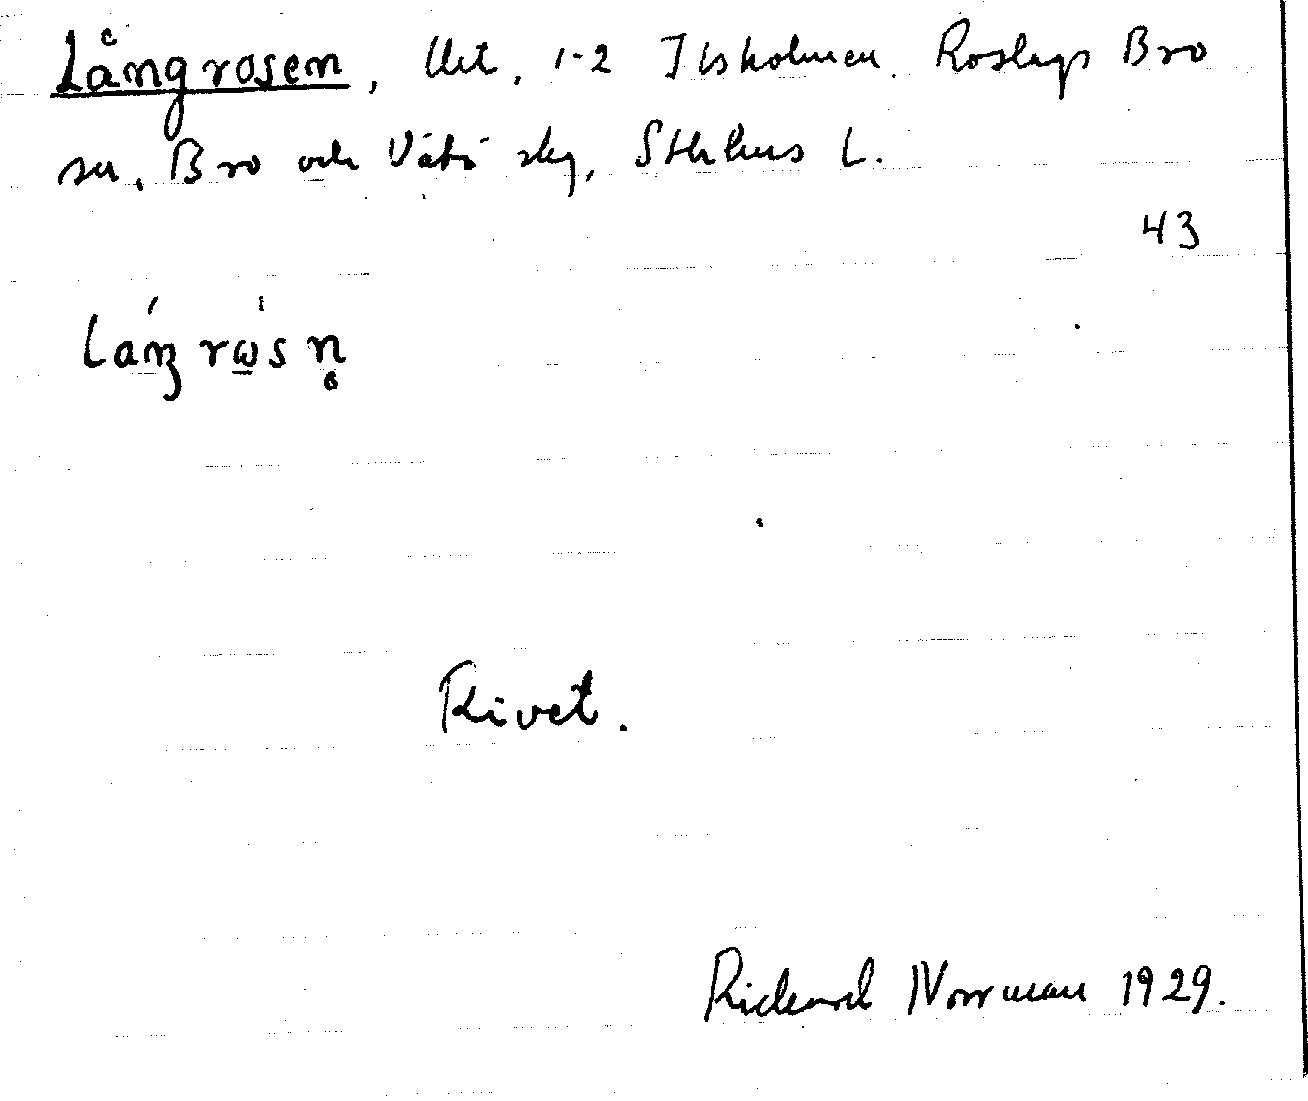 Långrosen, Utt, 1-2 Ilsholmen. Roslags Bro
sn, Bro och Vätö skg, Sthlms L.
43
Rivet.
Rickard Norrman 1929.